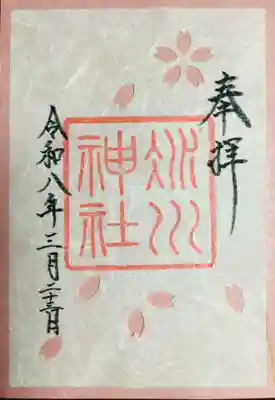 奉拝
氷川神社
令和八年三月二十三日